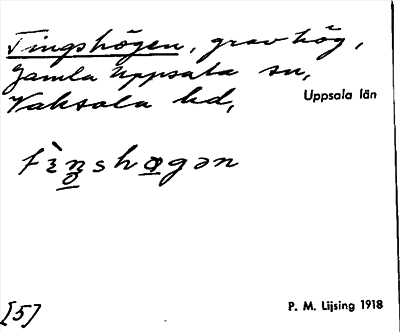 Tingshögen, gravhög,
Gamla Uppsala sn,
Vaksala hd,
Uppsala län
[5]
P. M. Lijsing 1918